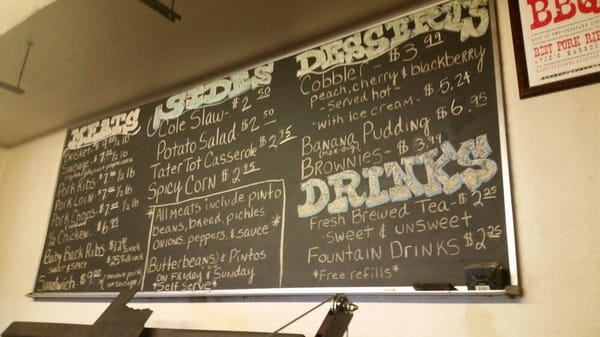 MEATS
Brisket
Sausage
Pork Ribs $7 1/2 lb
Pork Loin $7 1/2 lb
Pork Chops
1/2 Chicken $6 95
Baby Back Ribs
sweet & spicy
Sandwich
SIDES
Cole Slaw - $2 50
Potato Salad $2 50
Tater Tot Casserole $2 25
Spicy Corn $2 25
*All meats include pinto
beans, bread, pickles
onions, peppers, & sauce*
Butterbeans & Pintos
on Friday & Sunday
*Self serve*
DESSERTS
Cobbler - $3 99
peach, cherry & blackberry
- Served hot -
- with ice cream - $5.24
Banana Pudding $6.95
Brownies - $3.99
DRINKS
Fresh Brewed Tea - $2 25
sweet & unsweet
Fountain Drinks $2 25
*Free refills*
BBQ
BEST PORK RIBS